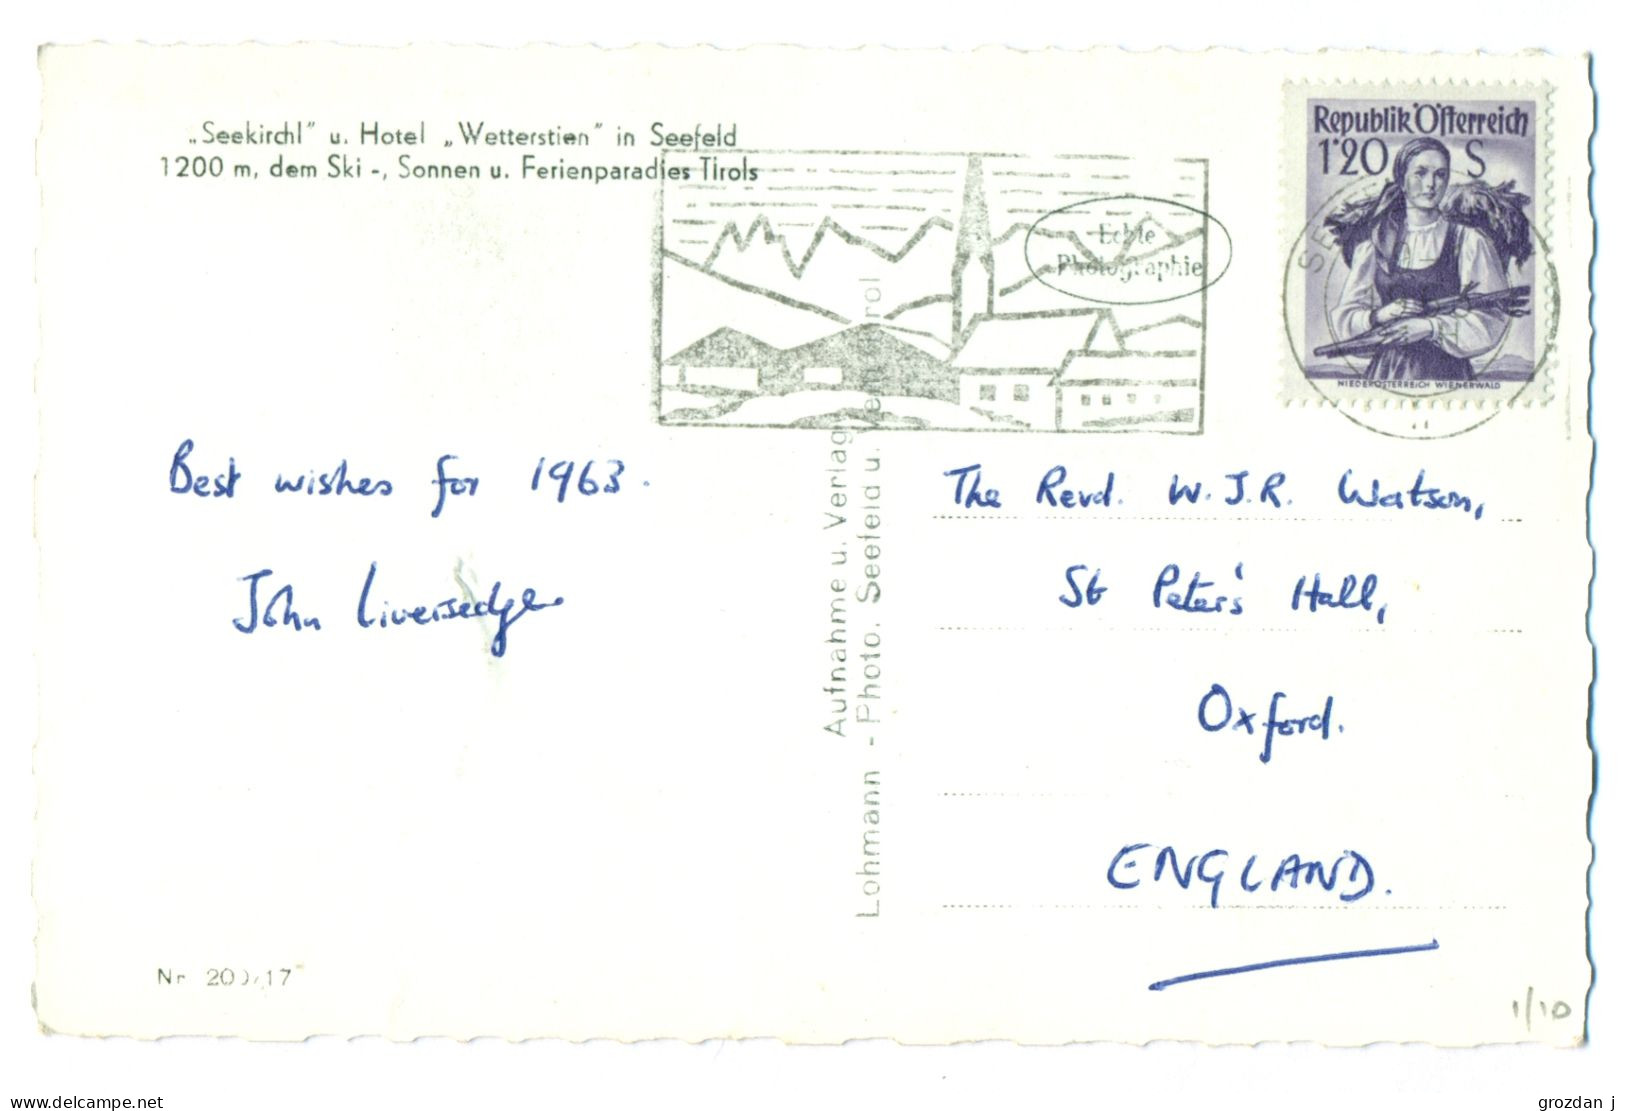 „Seekirchl" u. Hotel „Wetterstien" in Seefeld
1200 m, dem Ski -, Sonnen u. Ferienparadies Tirols
Echte
Photographie
Republik Österreich
1'20 S
NIEDERÖSTERREICH WIENERWALD
Best wishes for 1963.
John Liversedge
Aufnahme u. Verlag
Lohmann - Photo. Seefeld u.
The Revd. W.J.R. Watson,
St Peter's Hall,
Oxford.
ENGLAND.
Nr
1/10
delcampe.net
grozdan j